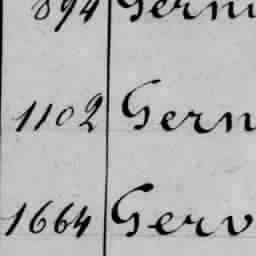 894 Germ
1102 Gern
1664 Gerv